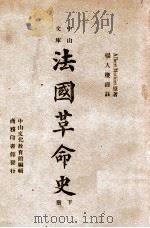 Albert Mathiez原著
楊人楩譯註
中山
文庫
法國革命史
下冊
中山文化敎育館編輯
商務印書館發行